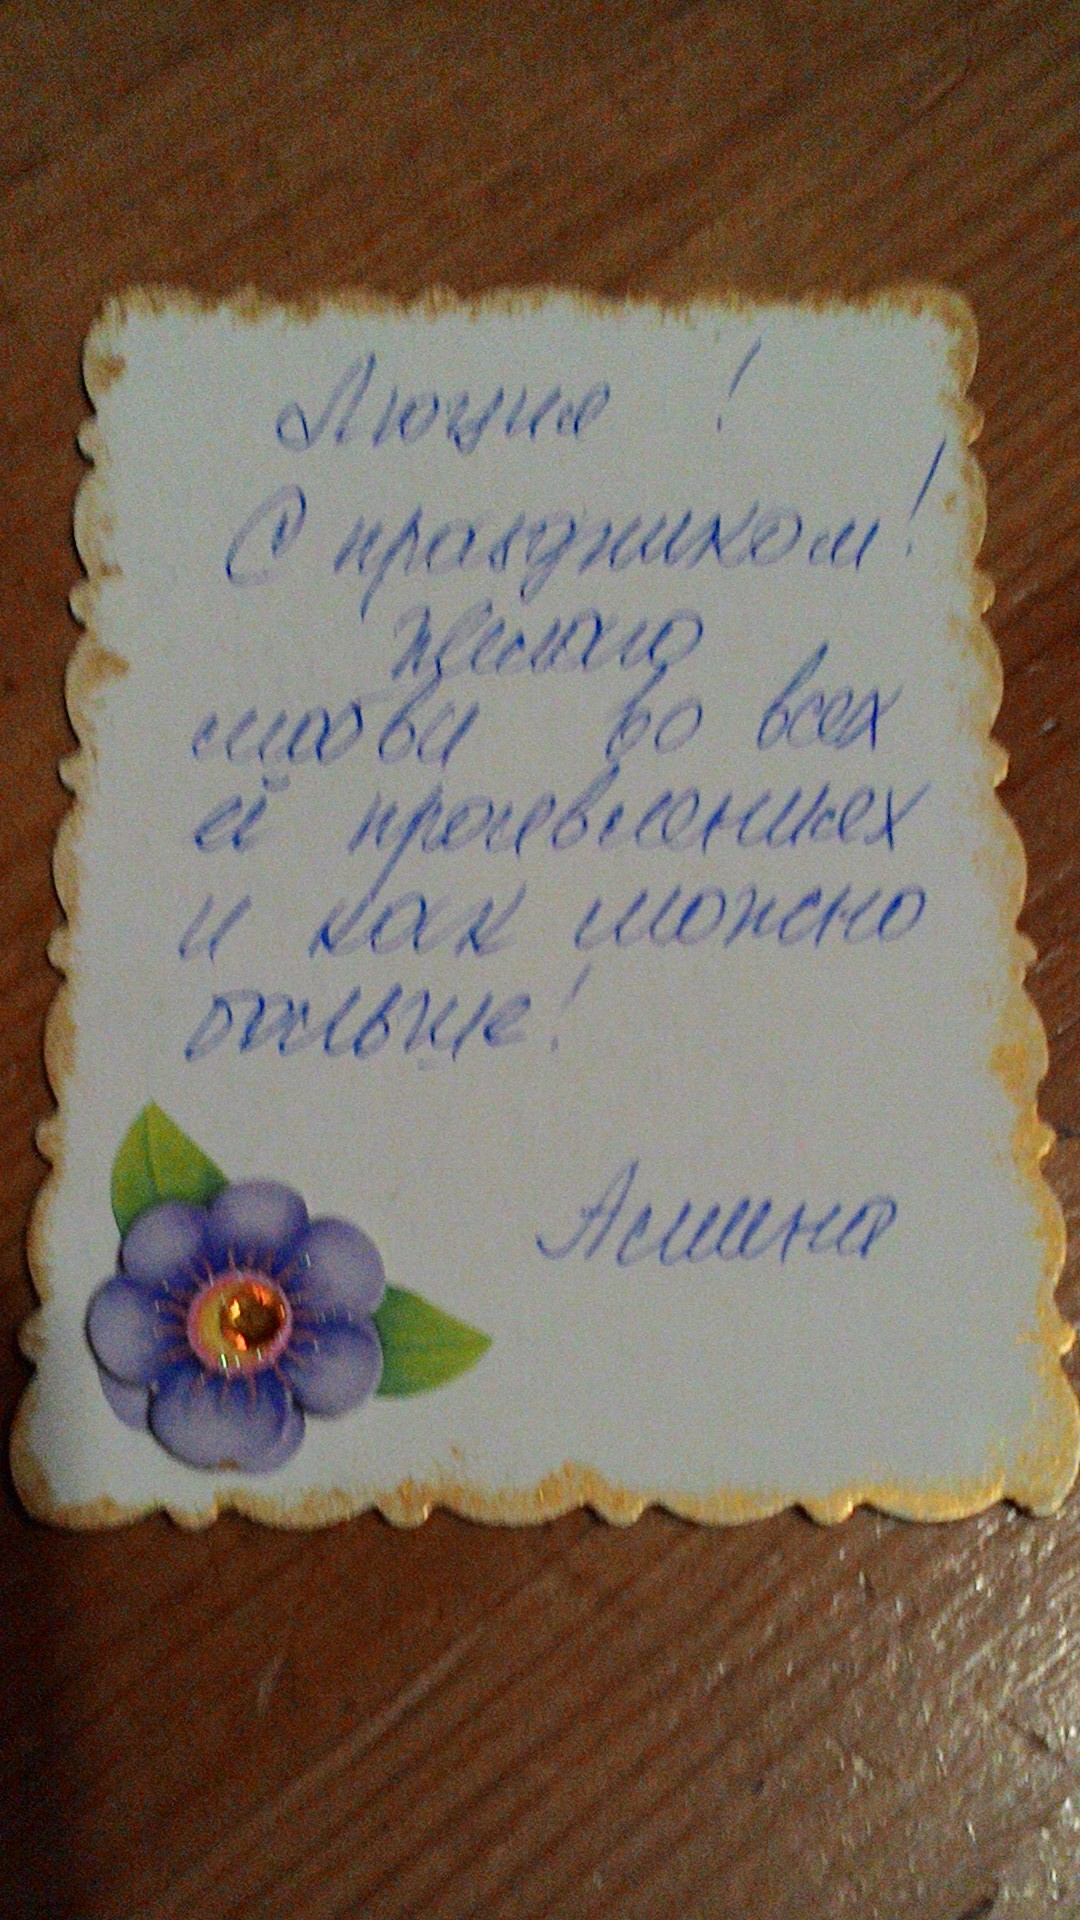 Люция !
С праздником!
Желаю
любви во всех
её проявлениях
и как можно
больше!